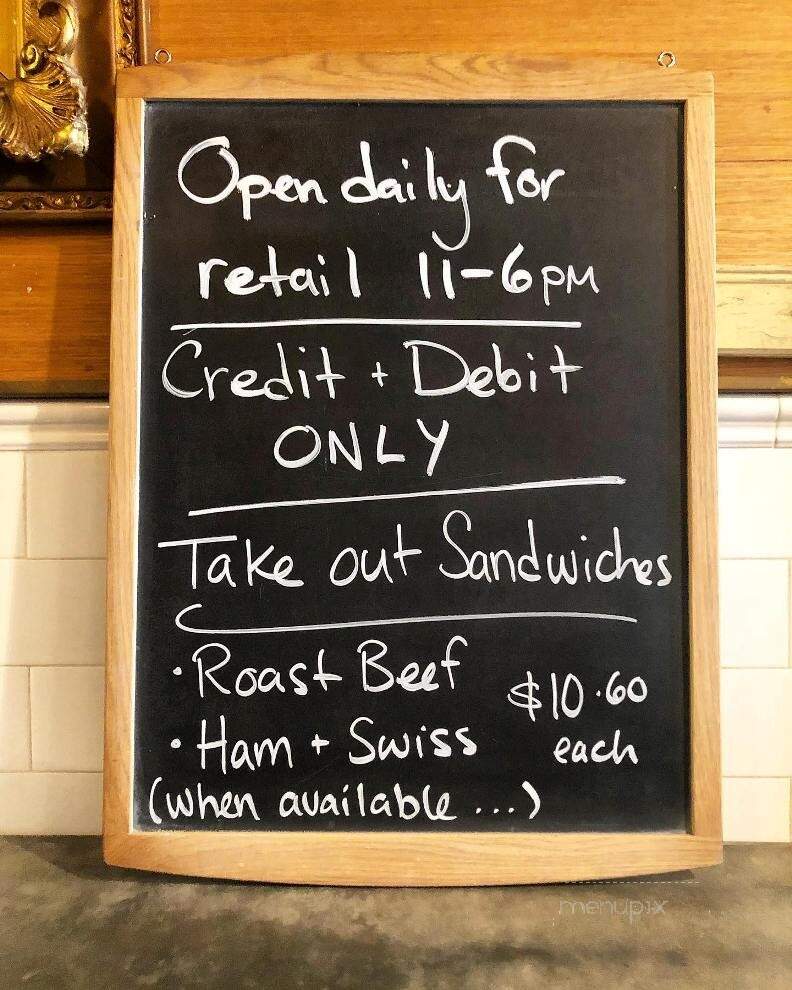 Open daily for
retail 11-6PM
Credit + Debit
ONLY
Take out Sandwiches
• Roast Beef $10.60
• Ham + Swiss each
(when available ...)
menupix